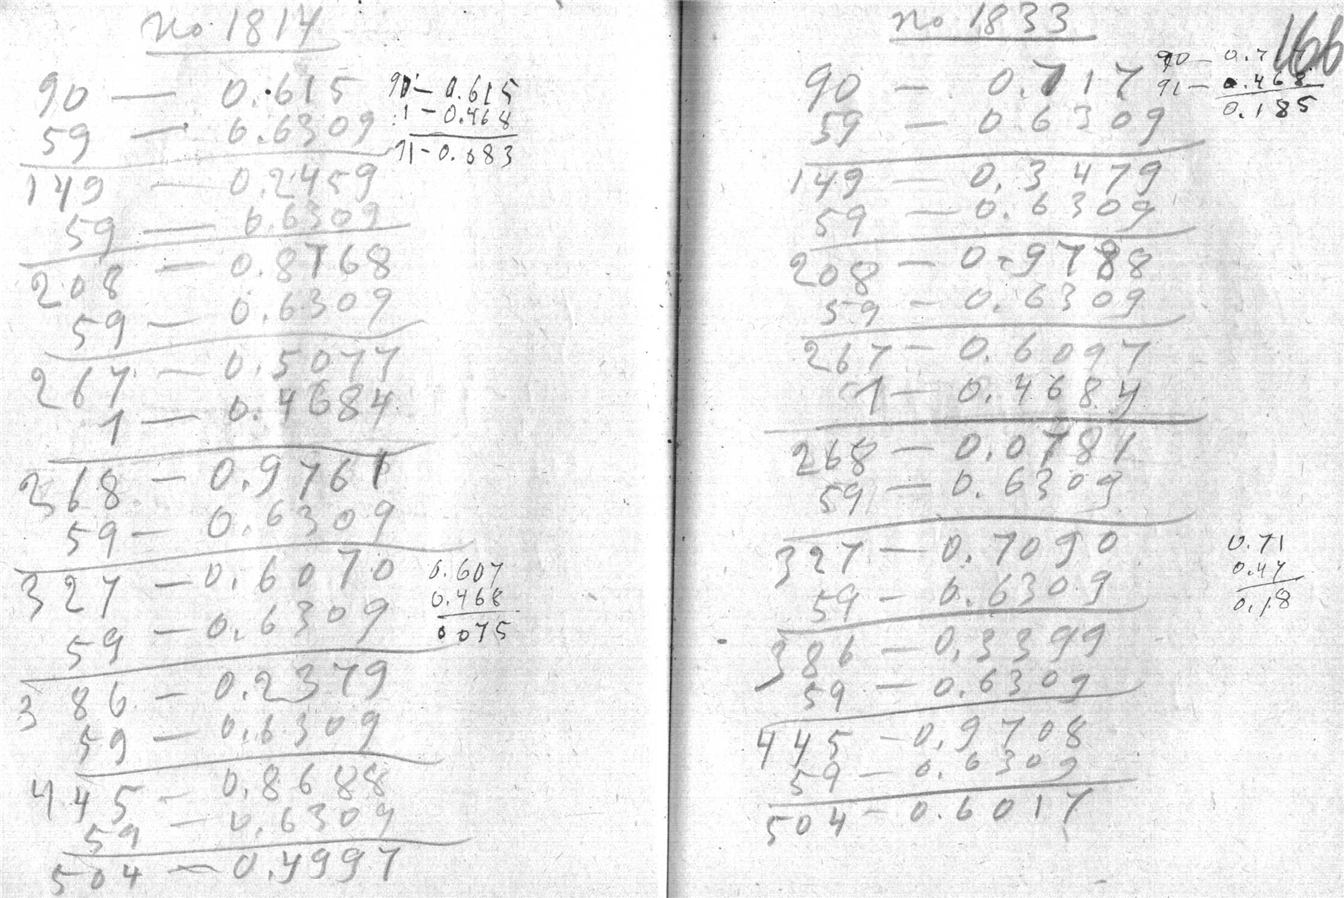 no 1814
90 — 0.615
59 — 0.6309
149 — 0.2459
59 — 0.6309
208 — 0.8768
59 — 0.6309
267 — 0.5077
1 — 0.4684
268 — 0.9761
59 — 0.6309
327 — 0.6070
59 — 0.6309
386 — 0.2379
59 — 0.6309
445 — 0.8688
59 — 0.6309
504 — 0.4997
90 — 0.615
1 — 0.468
91 — 0.083
0.607
0.468
0.075
166
no 1833
90 — 0.717
59 — 0.6309
149 — 0.3479
59 — 0.6309
208 — 0.9788
59 — 0.6309
267 — 0.6097
1 — 0.4684
268 — 0.0781
59 — 0.6309
327 — 0.7090
59 — 0.6309
386 — 0.3399
59 — 0.6309
445 — 0.9708
59 — 0.6309
504 — 0.6017
90 — 0.7
91 — 0.468
0.185
0.71
0.47
0.18